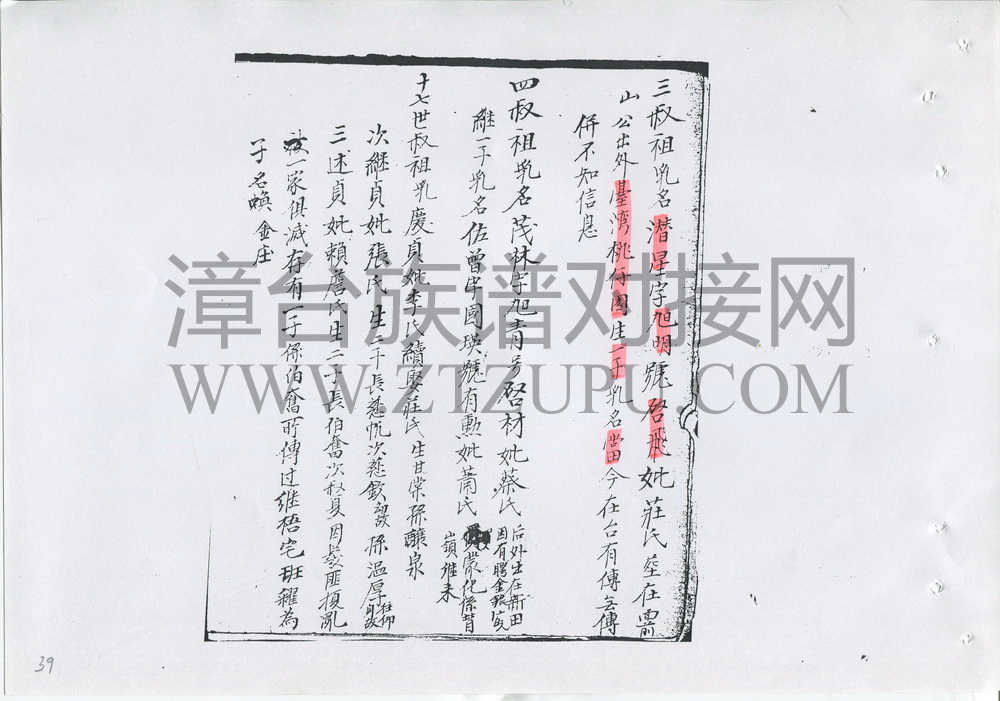 三叔祖乳名潛星字旭明號啓飛妣莊氏塟在霄
山公出外臺湾桃仔園生一子乳名當今在台有傳无傳
併不知信息
四叔祖乳名茂林字旭青号啓材妣蔡氏
后外出在新田
因有聘金銀
継一子乳名佐曾字國瑛號有勲妣蕭氏
蒙化係替
嶺継未
十七世叔祖乳慶貞妣李氏續娶莊氏生甘棠孫釀泉
次継貞妣張氏生二子長慈帆次慈欽 孫温厚
三述貞妣賴詹氏生二子長伯奮次 因髮匪擾亂
被一家俱滅存有一子係伯奮所傳过继梧宅班糴為
子名螇金庄
漳台族谱对接网
WWW.ZTZUPU.COM
39